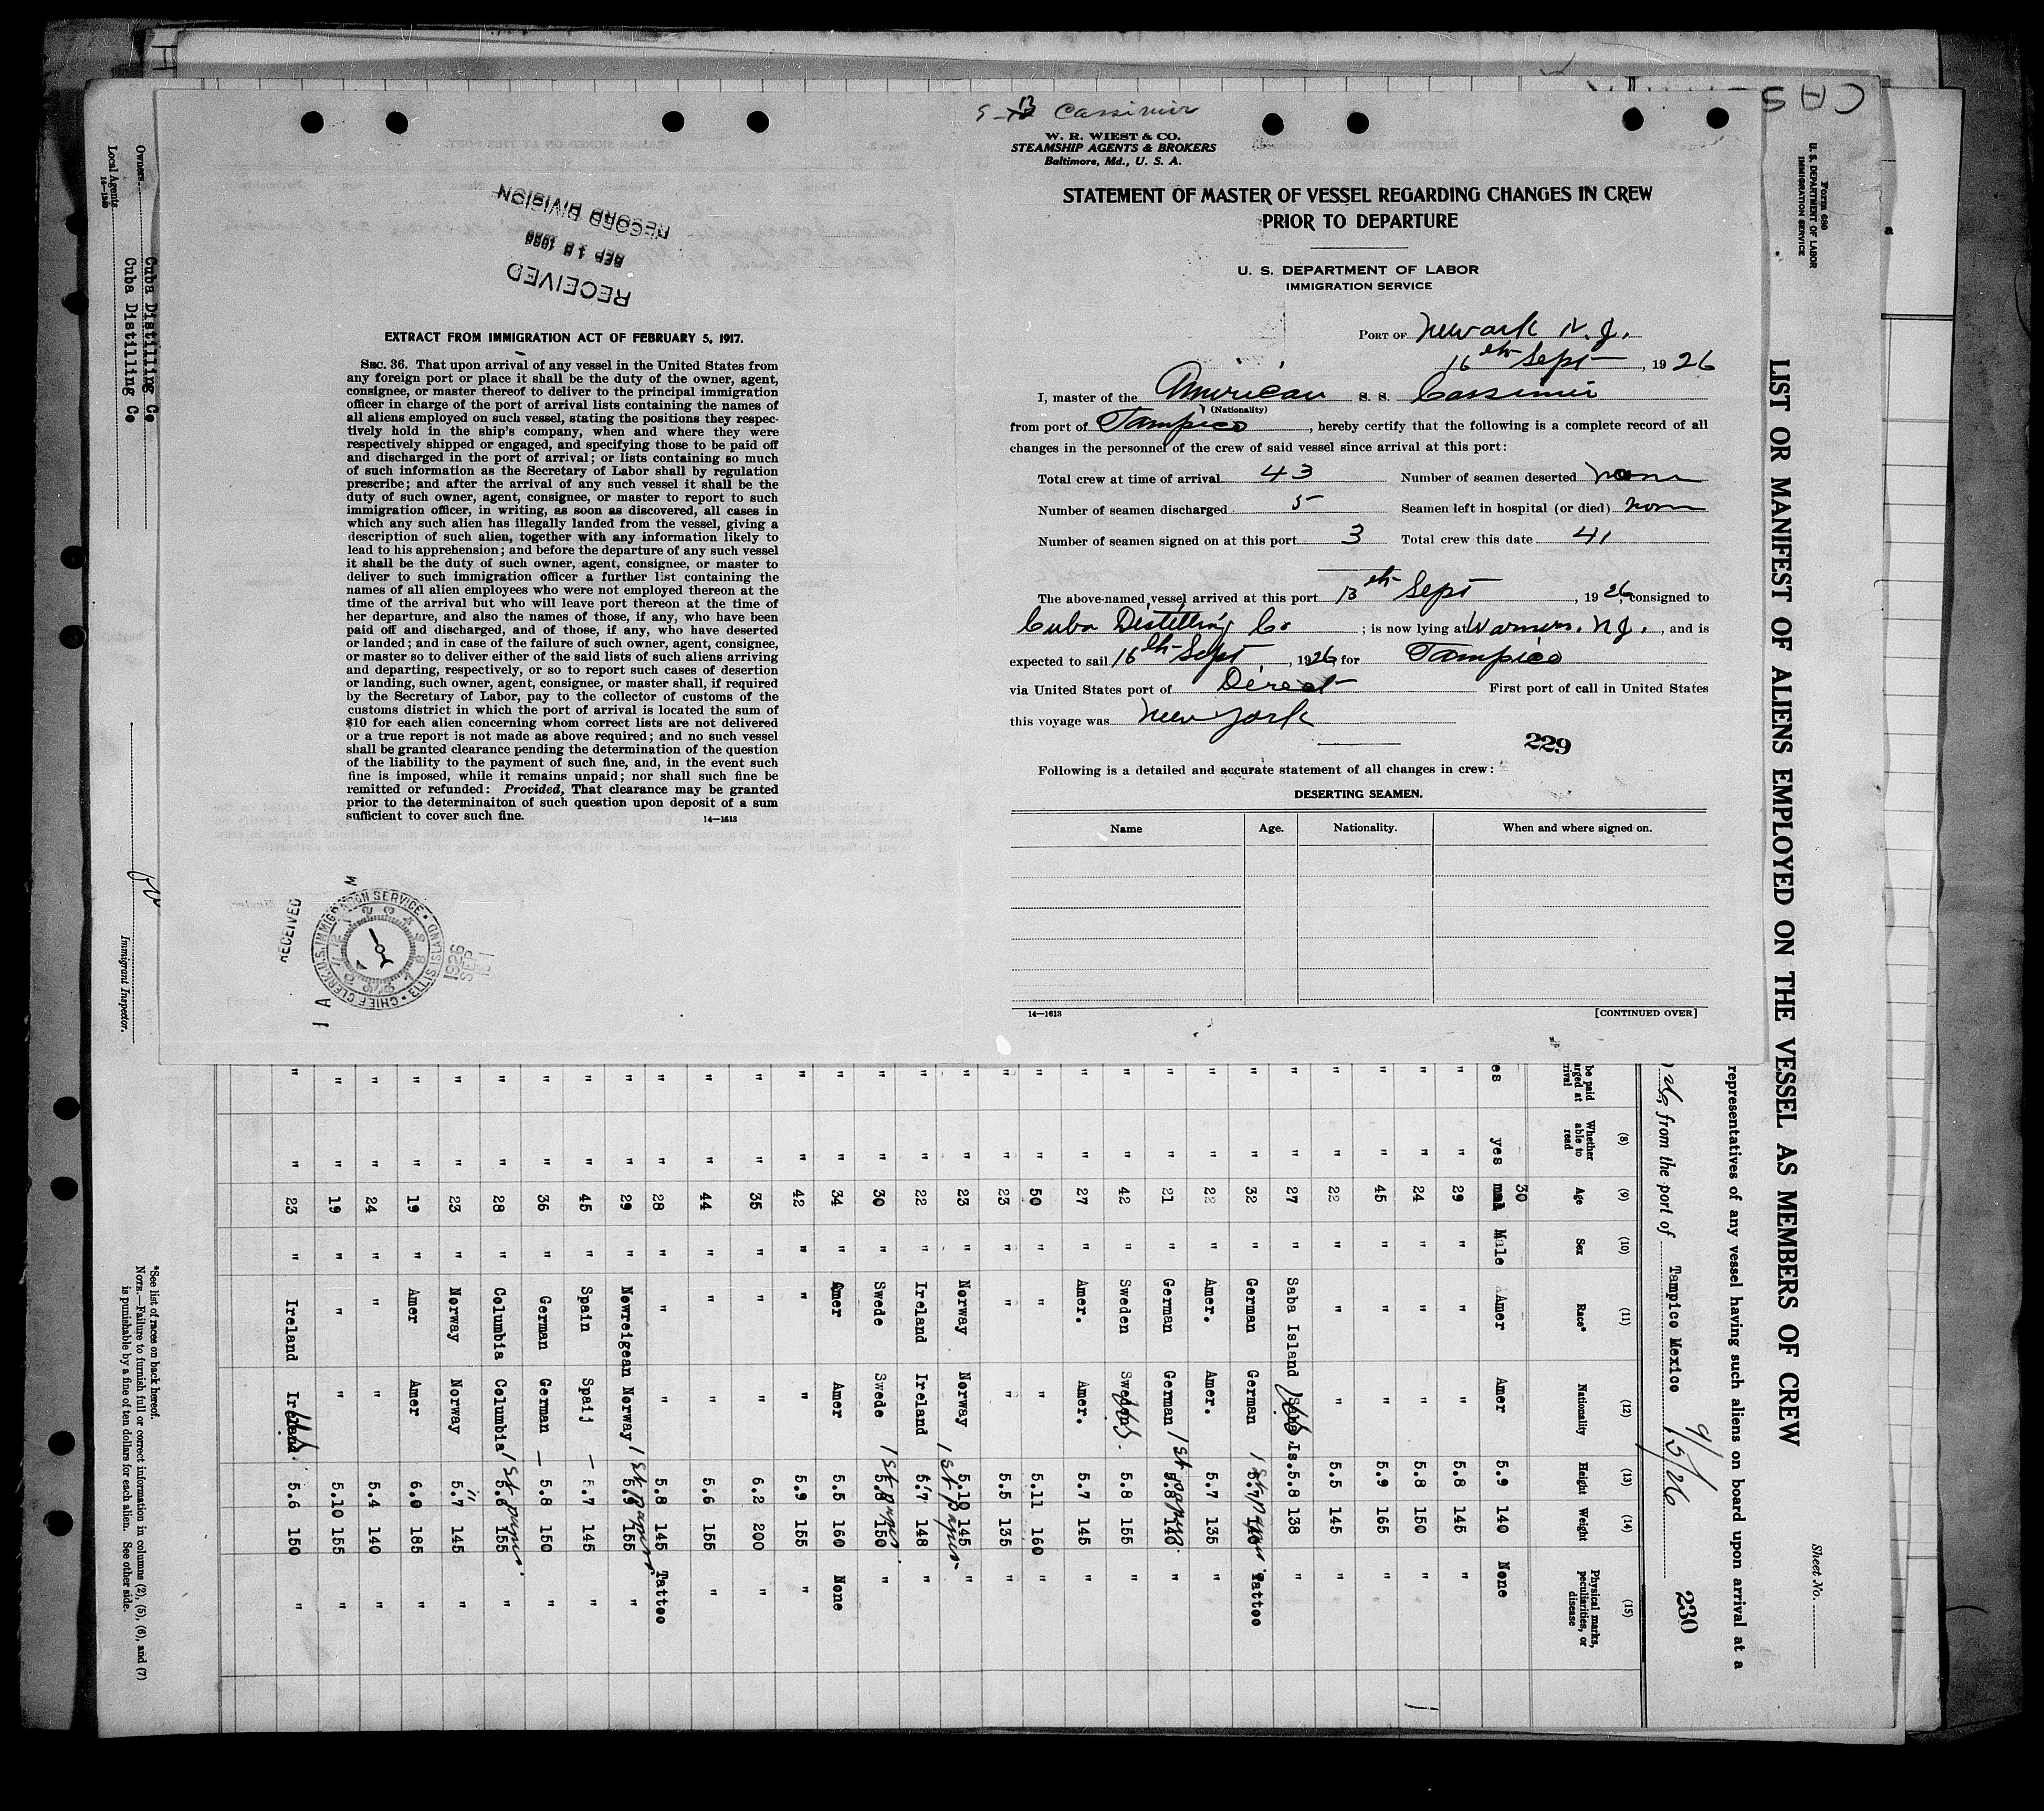 Cassimir
W. R. WIEST & CO.
STEAMSHIP AGENTS & BROKERS
Baltimore, Md., U. S. A.
STATEMENT OF MASTER OF VESSEL REGARDING CHANGES IN CREW
PRIOR TO DEPARTURE
U. S. DEPARTMENT OF LABOR
IMMIGRATION SERVICE
PORT OF Newark N. J.
16th Sept, 1926
I, master of the American S. S. Cassimir
(Nationality)
from port of Tampico, hereby certify that the following is a complete record of all
changes in the personnel of the crew of said vessel since arrival at this port:
Total crew at time of arrival 43 Number of seamen deserted none
Number of seamen discharged 5 Seamen left in hospital (or died) none
Number of seamen signed on at this port 3 Total crew this date 41
The above-named vessel arrived at this port 13th Sept, 1926, consigned to
Cuba Distilling Co; is now lying at Warners. N. J., and is
expected to sail 16th Sept, 1926 for Tampico
via United States port of Direct First port of call in United States
this voyage was New York
229
Following is a detailed and accurate statement of all changes in crew:
DESERTING SEAMEN.
Name Age. Nationality. When and where signed on.
14—1613 [CONTINUED OVER]
RECORD DIVISION
SEP 18 1926
RECEIVED
EXTRACT FROM IMMIGRATION ACT OF FEBRUARY 5, 1917.
SEC. 36. That upon arrival of any vessel in the United States from
any foreign port or place it shall be the duty of the owner, agent,
consignee, or master thereof to deliver to the principal immigration
officer in charge of the port of arrival lists containing the names of
all aliens employed on such vessel, stating the positions they respec-
tively hold in the ship's company, when and where they were
respectively shipped or engaged, and specifying those to be paid off
and discharged in the port of arrival; or lists containing so much
of such information as the Secretary of Labor shall by regulation
prescribe; and after the arrival of any such vessel it shall be the
duty of such owner, agent, consignee, or master to report to such
immigration officer, in writing, as soon as discovered, all cases in
which any such alien has illegally landed from the vessel, giving a
description of such alien, together with any information likely to
lead to his apprehension; and before the departure of any such vessel
it shall be the duty of such owner, agent, consignee, or master to
deliver to such immigration officer a further list containing the
names of all alien employees who were not employed thereon at the
time of the arrival but who will leave port thereon at the time of
her departure, and also the names of those, if any, who have been
paid off and discharged, and of those, if any, who have deserted
or landed; and in case of the failure of such owner, agent, consignee,
or master so to deliver either of the said lists of such aliens arriving
and departing, respectively, or so to report such cases of desertion
or landing, such owner, agent, consignee, or master shall, if required
by the Secretary of Labor, pay to the collector of customs of the
customs district in which the port of arrival is located the sum of
$10 for each alien concerning whom correct lists are not delivered
or a true report is not made as above required; and no such vessel
shall be granted clearance pending the determination of the question
of the liability to the payment of such fine, and, in the event such
fine is imposed, while it remains unpaid; nor shall such fine be
remitted or refunded: Provided, That clearance may be granted
prior to the determinaiton of such question upon deposit of a sum
sufficient to cover such fine.
14—1613
RECEIVED
CHIEF CLERK. U.S. IMMIGRATION SERVICE. ELLIS ISLAND
1926
SEP
Form 680
U. S. DEPARTMENT OF LABOR
IMMIGRATION SERVICE
Sheet No.
LIST OR MANIFEST OF ALIENS EMPLOYED ON THE VESSEL AS MEMBERS OF CREW
representatives of any vessel having such aliens on board upon arrival at a
26, from the port of Tampico Mexico 9/13/26 230
(8) (9) (10) (11) (12) (13) (14) (15)
Whether able to read Age Sex Race* Nationality Height Weight Physical marks, peculiarities, or disease
30
yes Male Amer Amer 5.9 140 None
" " 29 " " " 5.8 145
" " 24 " " " 5.8 150
" " 45 " " " 5.9 165
" " 22 " " " 5.5 145 "
" " 27 " Saba Island Is. 5.8 138 "
" " 32 " German German 1st papers 5.7 Tattoo
" " 22 " Amer. Amer. 5.7 135 "
" " 21 " German German 1st papers 5.8 140 "
" " 42 " Sweden Sweden 5.8 155 "
" " 27 " Amer. Amer. 5.7 145 "
" " 50 " " " 5.11 160 "
" " 23 " " " 5.5 135 "
" " 23 " Norway Norway 1st papers 5.10 145 "
" " 22 " Ireland Ireland 5.7 148 "
" " 30 " Swede Swede 1st papers 5.8 150 "
" " 34 " Amer Amer 5.5 160 None
" " 42 " " " 5.9 155 "
" " 35 " " " 6.2 200 "
" " 44 " " " 5.6 155 "
" " 28 " " " 5.8 145 Tattoo
" " 29 " Nowreigean Norway 1st papers 5.9 155 "
" " 45 " Spain Spaij 5.7 145 "
" " 36 " German German 5.8 150 "
" " 28 " Columbia Columbia 1st papers. 5.6 155 "
" " 23 " Norway Norway 5.7 145 "
" " 19 " Amer Amer 6.0 185 "
" " 24 " " " 5.4 140 "
" " 19 " " " 5.10 155 "
" " 23 " Ireland Ireland 5.6 150 "
*See list of races on back hereof.
NOTE.—Failure to furnish full or correct information in columns (2), (5), (6), and (7)
is punishable by a fine of ten dollars for each alien. See other side.
Owners Cuba Distilling Co
Local Agents Cuba Distilling Co
14—1240
Immigrant Inspector.